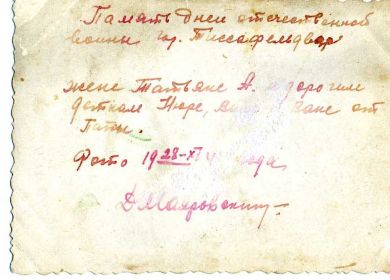 Память дней отечественной
войны гор. Тиссафельдвар
жене Татьяне А. и дорогим
деткам Нюре, Ване от
Пити.
Фото 1928-XI года
Д Маяровский